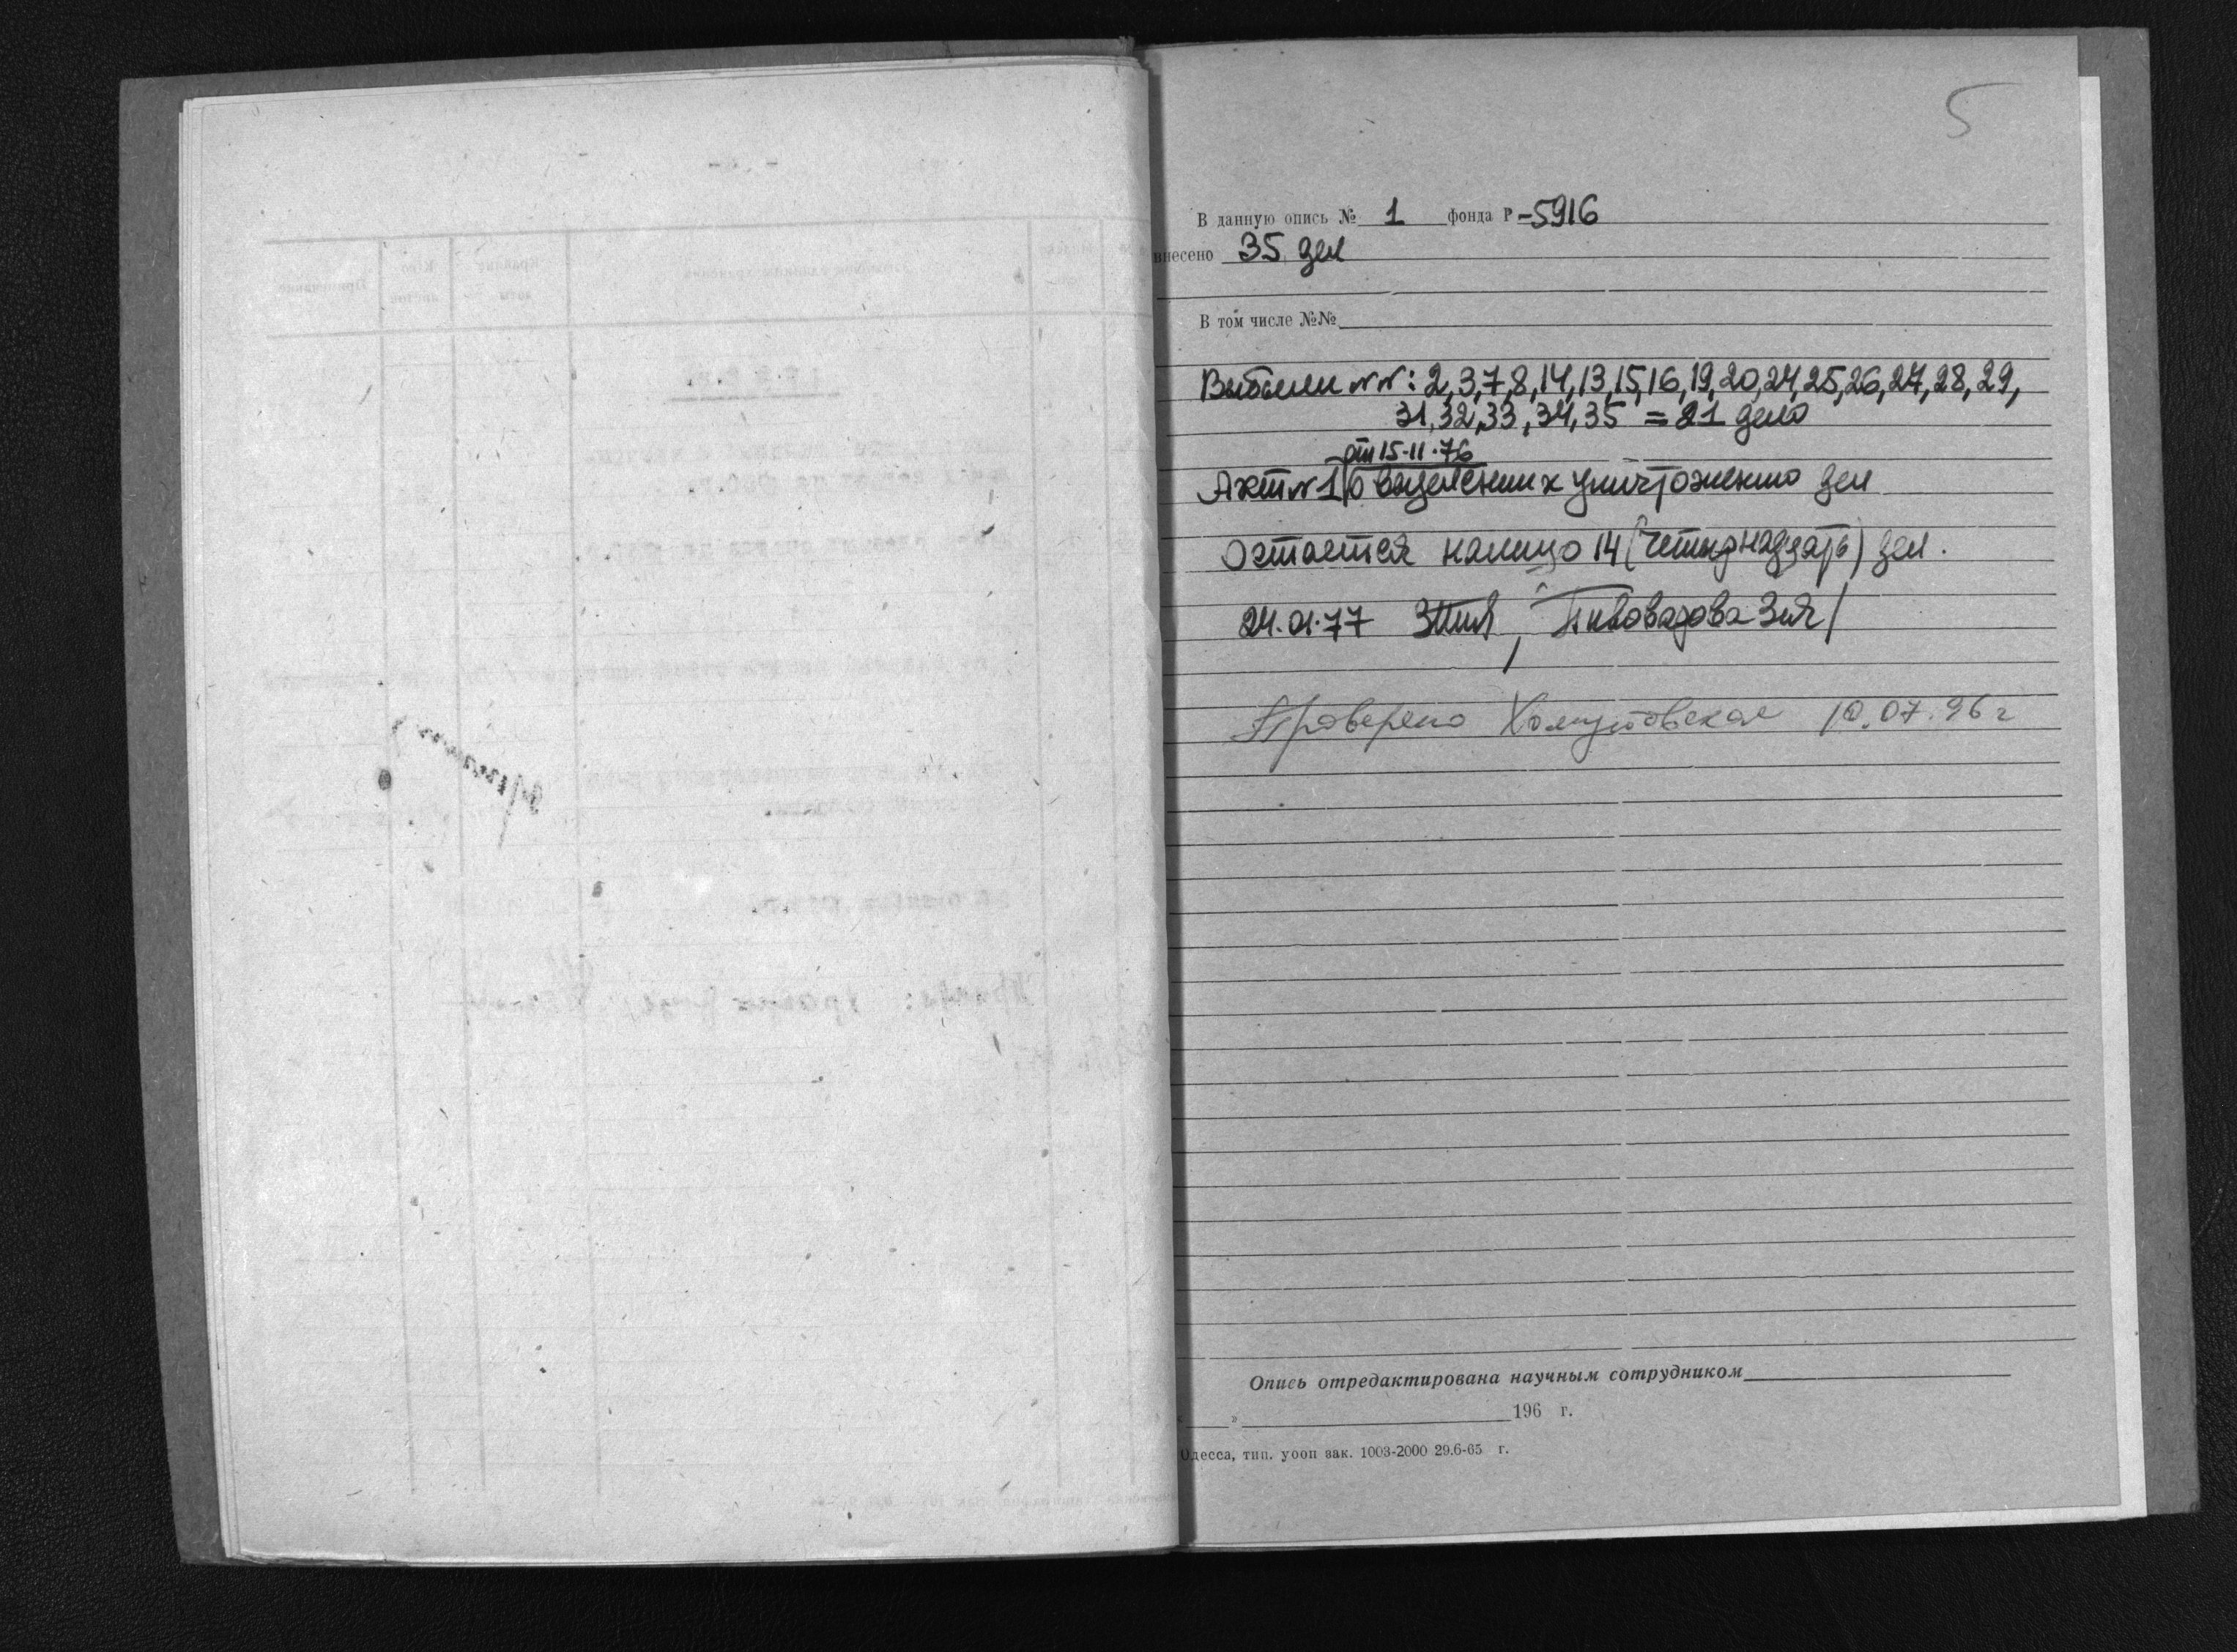 5
В данную опись № 1 фонда Р-5916
внесено 35 дел
В том числе №№
Выбыли NN: 2,3,7,8,14,13,15,16,19,20,24,25,26,27,28,29,
31,32,33,34,35 = 21 дело
от 15-11-76
Акт N 1 о выделении к уничтожению дел
Остается налицо 14 (четырнадцать) дел.
24.01.77 Пивоварова
Проверено 10.07.96 г
Опись отредактирована научным сотрудником
« » 196 г.
Одесса, тип. уооп зак. 1003-2000 29.6-65 г.